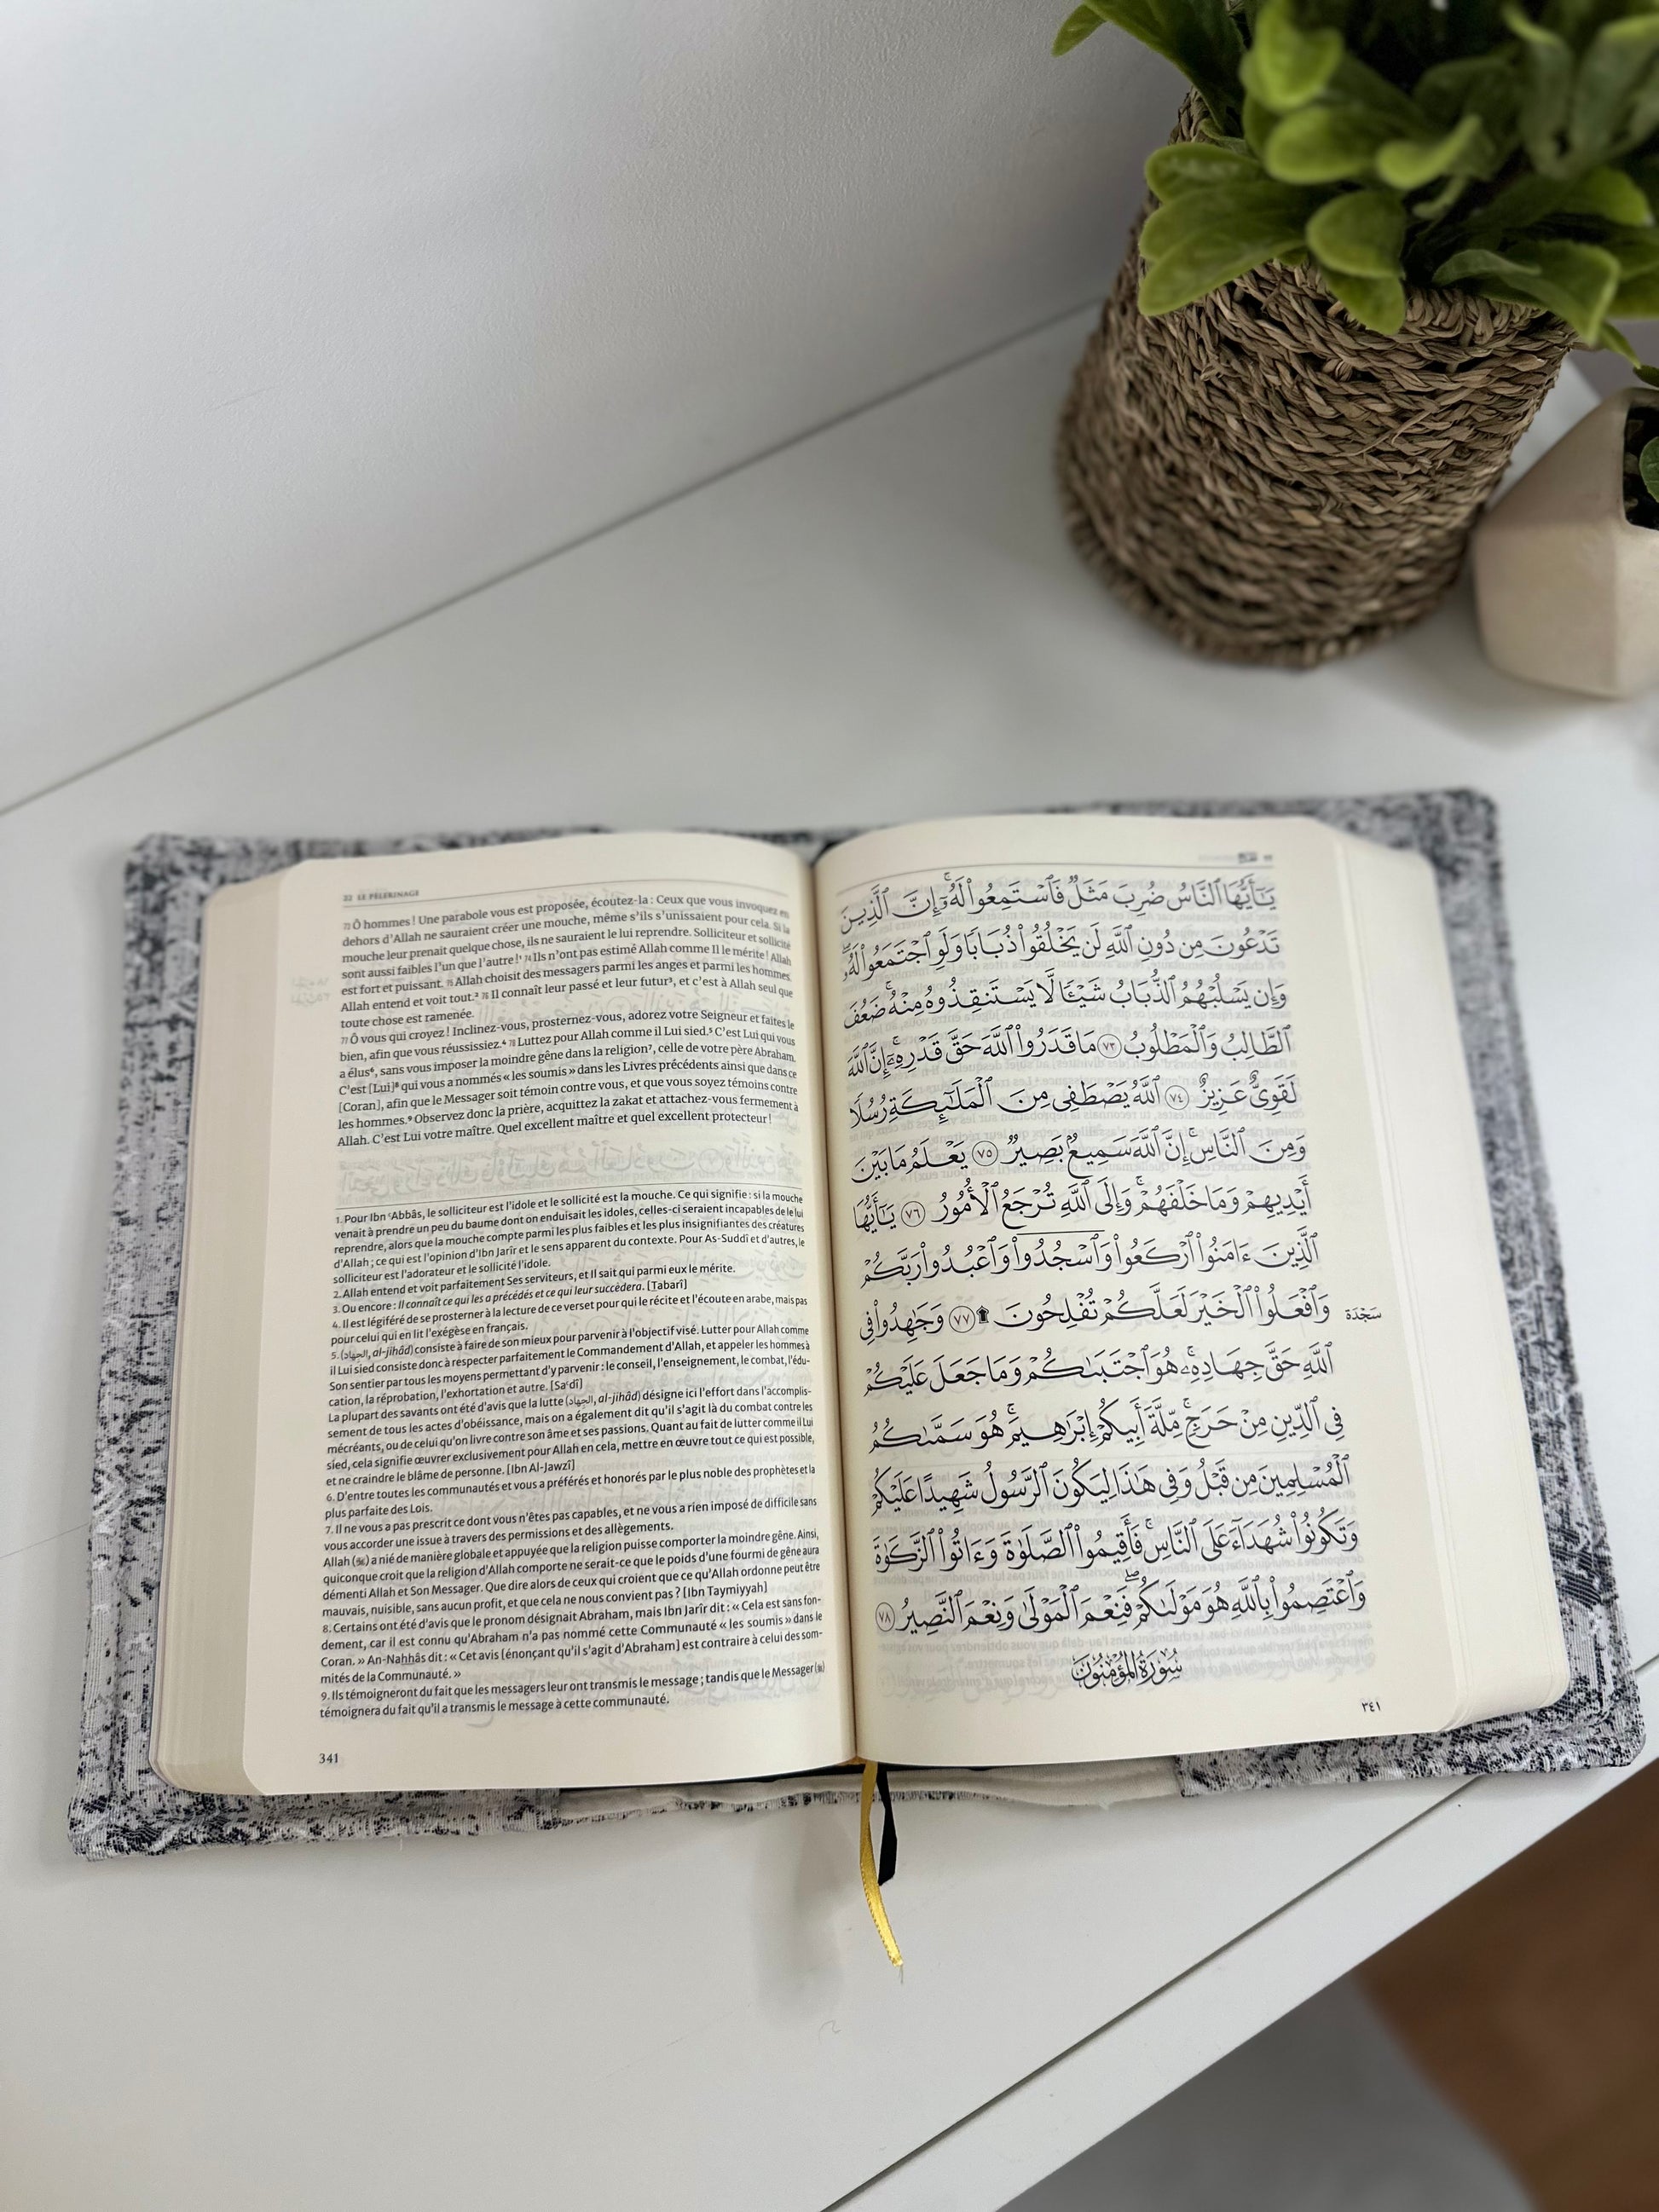 22 LE PÈLERINAGE
73 Ô hommes ! Une parabole vous est proposée, écoutez-la : Ceux que vous invoquez en
dehors d'Allah ne sauraient créer une mouche, même s'ils s'unissaient pour cela. Si la
mouche leur prenait quelque chose, ils ne sauraient le lui reprendre. Solliciteur et sollicité
sont aussi faibles l'un que l'autre !¹ 74 Ils n'ont pas estimé Allah comme Il le mérite ! Allah
est fort et puissant. 75 Allah choisit des messagers parmi les anges et parmi les hommes.
Allah entend et voit tout.² 76 Il connaît leur passé et leur futur³, et c'est à Allah seul que
toute chose est ramenée.
77 Ô vous qui croyez ! Inclinez-vous, prosternez-vous, adorez votre Seigneur et faites le
bien, afin que vous réussissiez.⁴ 78 Luttez pour Allah comme il Lui sied.⁵ C'est Lui qui vous
a élus⁶, sans vous imposer la moindre gêne dans la religion⁷, celle de votre père Abraham.
C'est [Lui]⁸ qui vous a nommés « les soumis » dans les Livres précédents ainsi que dans ce
[Coran], afin que le Messager soit témoin contre vous, et que vous soyez témoins contre
les hommes.⁹ Observez donc la prière, acquittez la zakat et attachez-vous fermement à
Allah. C'est Lui votre maître. Quel excellent maître et quel excellent protecteur !
1. Pour Ibn ʿAbbâs, le solliciteur est l'idole et le sollicité est la mouche. Ce qui signifie : si la mouche
venait à prendre un peu du baume dont on enduisait les idoles, celles-ci seraient incapables de le lui
reprendre, alors que la mouche compte parmi les plus faibles et les plus insignifiantes des créatures
d'Allah ; ce qui est l'opinion d'Ibn Jarîr et le sens apparent du contexte. Pour As-Suddî et d'autres, le
solliciteur est l'adorateur et le sollicité l'idole.
2. Allah entend et voit parfaitement Ses serviteurs, et Il sait qui parmi eux le mérite.
3. Ou encore : Il connaît ce qui les a précédés et ce qui leur succèdera. [Tabarî]
4. Il est légiféré de se prosterner à la lecture de ce verset pour qui le récite et l'écoute en arabe, mais pas
pour celui qui en lit l'exégèse en français.
5. (الجهاد, al-jihâd) consiste à faire de son mieux pour parvenir à l'objectif visé. Lutter pour Allah comme
il Lui sied consiste donc à respecter parfaitement le Commandement d'Allah, et appeler les hommes à
Son sentier par tous les moyens permettant d'y parvenir : le conseil, l'enseignement, le combat, l'édu-
cation, la réprobation, l'exhortation et autre. [Saʿdî]
La plupart des savants ont été d'avis que la lutte (الجهاد, al-jihâd) désigne ici l'effort dans l'accomplis-
sement de tous les actes d'obéissance, mais on a également dit qu'il s'agit là du combat contre les
mécréants, ou de celui qu'on livre contre son âme et ses passions. Quant au fait de lutter comme il Lui
sied, cela signifie œuvrer exclusivement pour Allah en cela, mettre en œuvre tout ce qui est possible,
et ne craindre le blâme de personne. [Ibn Al-Jawzî]
6. D'entre toutes les communautés et vous a préférés et honorés par le plus noble des prophètes et la
plus parfaite des Lois.
7. Il ne vous a pas prescrit ce dont vous n'êtes pas capables, et ne vous a rien imposé de difficile sans
vous accorder une issue à travers des permissions et des allègements.
Allah (ﷻ) a nié de manière globale et appuyée que la religion puisse comporter la moindre gêne. Ainsi,
quiconque croit que la religion d'Allah comporte ne serait-ce que le poids d'une fourmi de gêne aura
démenti Allah et Son Messager. Que dire alors de ceux qui croient que ce qu'Allah ordonne peut être
mauvais, nuisible, sans aucun profit, et que cela ne nous convient pas ? [Ibn Taymiyyah]
8. Certains ont été d'avis que le pronom désignait Abraham, mais Ibn Jarîr dit : « Cela est sans fon-
dement, car il est connu qu'Abraham n'a pas nommé cette Communauté « les soumis » dans le
Coran. » An-Nahhâs dit : « Cet avis [énonçant qu'il s'agit d'Abraham] est contraire à celui des som-
mités de la Communauté. »
9. Ils témoigneront du fait que les messagers leur ont transmis le message ; tandis que le Messager (ﷺ)
témoignera du fait qu'il a transmis le message à cette communauté.
341
يَـٰٓأَيُّهَا ٱلنَّاسُ ضُرِبَ مَثَلٌ فَٱسْتَمِعُوا۟ لَهُۥٓ ۚ إِنَّ ٱلَّذِينَ
تَدْعُونَ مِن دُونِ ٱللَّهِ لَن يَخْلُقُوا۟ ذُبَابًا وَلَوِ ٱجْتَمَعُوا۟ لَهُۥ ۖ
وَإِن يَسْلُبْهُمُ ٱلذُّبَابُ شَيْـًٔا لَّا يَسْتَنقِذُوهُ مِنْهُ ۚ ضَعُفَ
ٱلطَّالِبُ وَٱلْمَطْلُوبُ ٧٣ مَا قَدَرُوا۟ ٱللَّهَ حَقَّ قَدْرِهِۦٓ ۗ إِنَّ ٱللَّهَ
لَقَوِىٌّ عَزِيزٌ ٧٤ ٱللَّهُ يَصْطَفِى مِنَ ٱلْمَلَـٰٓئِكَةِ رُسُلًا
وَمِنَ ٱلنَّاسِ ۚ إِنَّ ٱللَّهَ سَمِيعٌۢ بَصِيرٌ ٧٥ يَعْلَمُ مَا بَيْنَ
أَيْدِيهِمْ وَمَا خَلْفَهُمْ ۗ وَإِلَى ٱللَّهِ تُرْجَعُ ٱلْأُمُورُ ٧٦ يَـٰٓأَيُّهَا
ٱلَّذِينَ ءَامَنُوا۟ ٱرْكَعُوا۟ وَٱسْجُدُوا۟ وَٱعْبُدُوا۟ رَبَّكُمْ
وَٱفْعَلُوا۟ ٱلْخَيْرَ لَعَلَّكُمْ تُفْلِحُونَ ۩ ٧٧ وَجَـٰهِدُوا۟ فِى
سَجْدَة
ٱللَّهِ حَقَّ جِهَادِهِۦ ۚ هُوَ ٱجْتَبَىٰكُمْ وَمَا جَعَلَ عَلَيْكُمْ
فِى ٱلدِّينِ مِنْ حَرَجٍ ۚ مِّلَّةَ أَبِيكُمْ إِبْرَٰهِيمَ ۚ هُوَ سَمَّىٰكُمُ
ٱلْمُسْلِمِينَ مِن قَبْلُ وَفِى هَـٰذَا لِيَكُونَ ٱلرَّسُولُ شَهِيدًا عَلَيْكُمْ
وَتَكُونُوا۟ شُهَدَآءَ عَلَى ٱلنَّاسِ ۚ فَأَقِيمُوا۟ ٱلصَّلَوٰةَ وَءَاتُوا۟ ٱلزَّكَوٰةَ
وَٱعْتَصِمُوا۟ بِٱللَّهِ هُوَ مَوْلَىٰكُمْ ۖ فَنِعْمَ ٱلْمَوْلَىٰ وَنِعْمَ ٱلنَّصِيرُ ٧٨
سُورَةُ المُؤْمِنُونَ
٣٤١